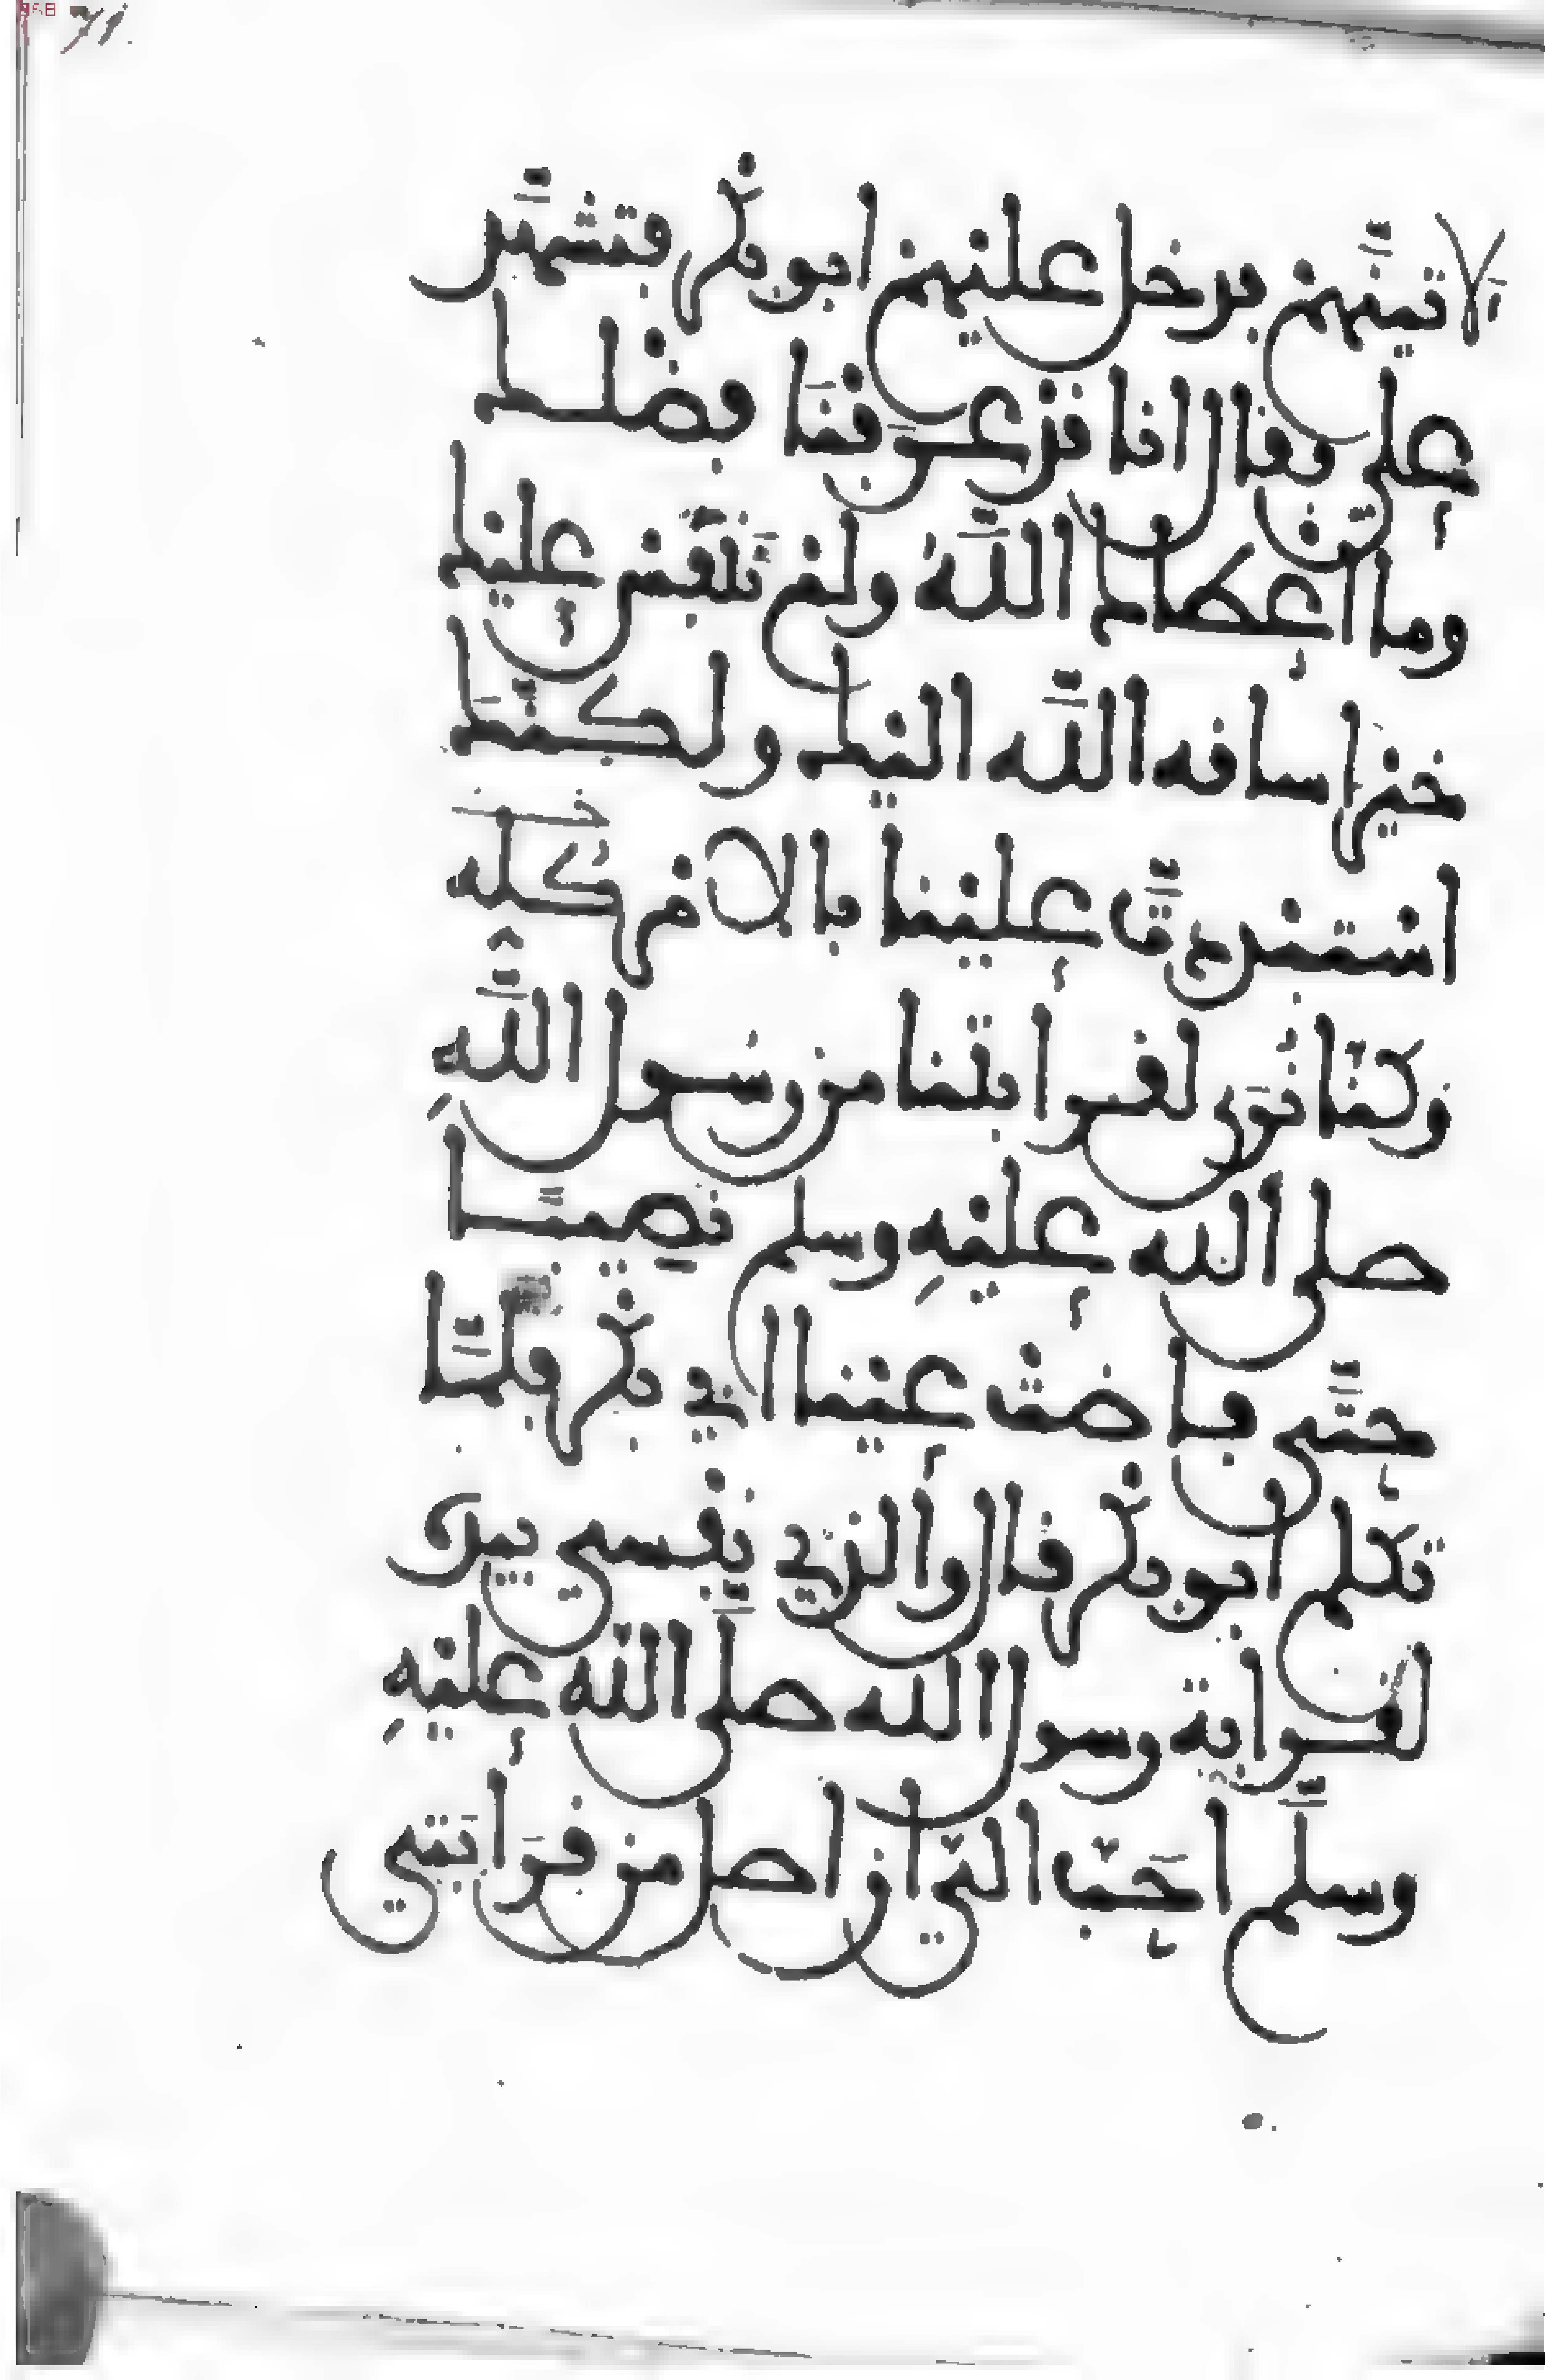 لآتينهم فدخل عليهم ابو بكر فتشهد
علي فقال انا قد عرفنا فضلك
وما اعطاك اللَّهُ ولم ننفس عليك
خيرا ساقه اللَّه اليك ولكنَّك
استبددت علينا بالامر كله
وكنّا نرى لقرابتنا من رسول اللَّهِ
صلى الله عليْهِ وسلم نصيبًا
حتَّى فاضت عينا ابي بكر فلمَّا
تكلم ابو بكر قال والذي نفسي بيده
لقرابة رسول الله صلَّى اللّه عليْهِ
وسلَّم احَبّ اليّ ان اصل من قرابتي